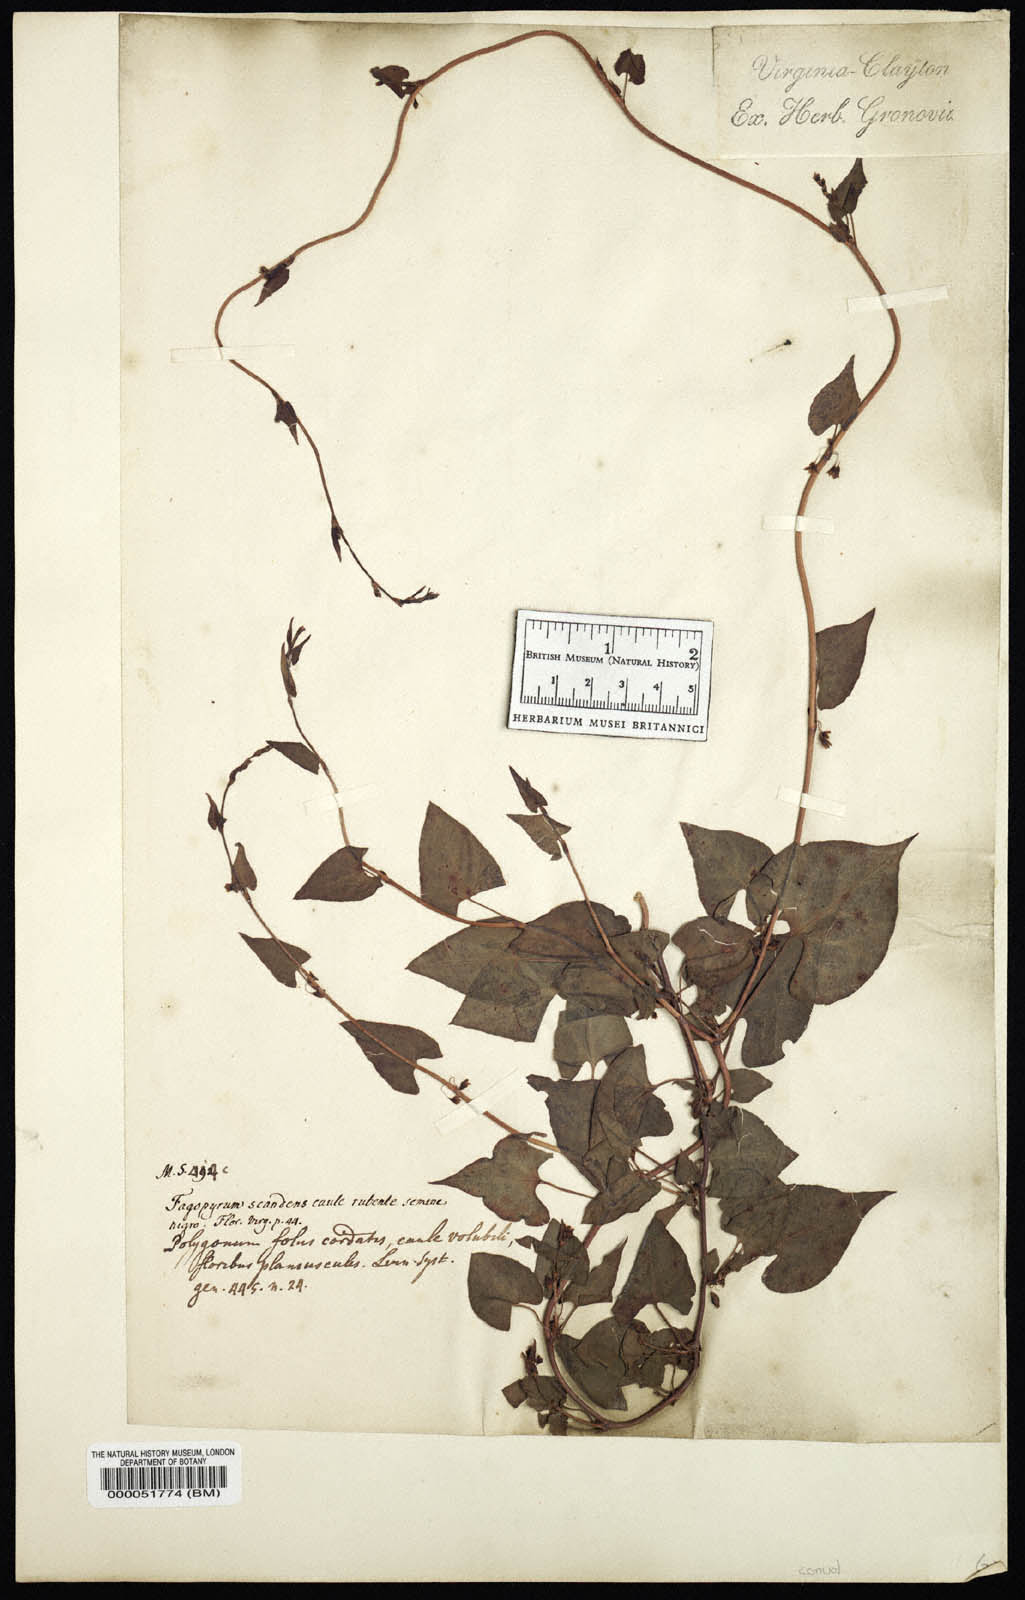 Virginia-Clayton
Ex. Herb. Gronovii
1 2
British Museum (Natural History)
1 2 3 4 5
HERBARIUM MUSEI BRITANNICI
M. S. 494 c
Fagopyrum scandens caule rubente semine
nigro. Flor. Virg. p. 44.
Polygonum foliis cordatis, caule volubili,
floribus planiusculis. Linn. Syst.
gen. 445. n. 24.
THE NATURAL HISTORY MUSEUM, LONDON
DEPARTMENT OF BOTANY
000051774 (BM)
convol